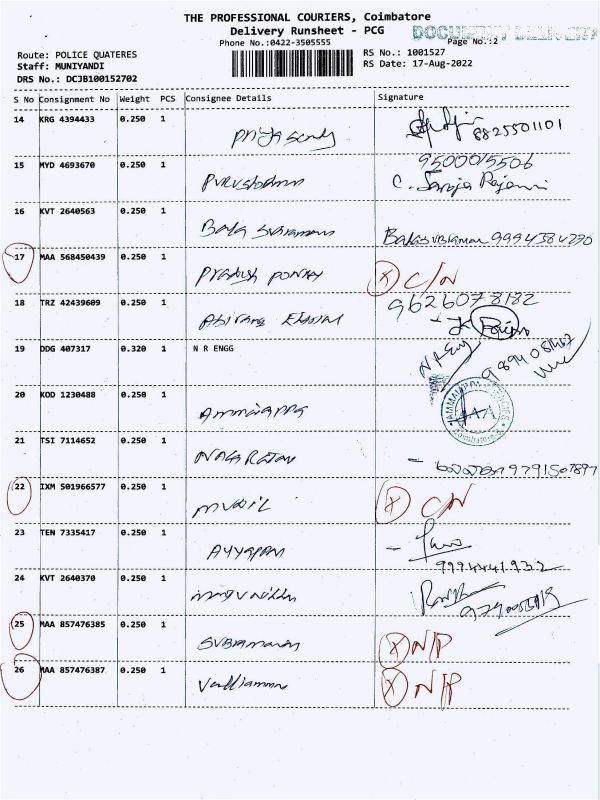 THE PROFESSIONAL COURIERS, Coimbatore
Delivery Runsheet - PCG
DOCUMENT DELIVERY
Phone No.:0422-3505555
Page No.:2
Route: POLICE QUATERES
RS No.: 1001527
Staff: MUNIYANDI
RS Date: 17-Aug-2022
DRS No.: DCJB100152702
S No Consignment No Weight PCS Consignee Details Signature
14 KRG 4394433 0.250 1
8825501101
15 MYD 4693670 0.250 1 Purushothman
9500015506
C. Saroja Rajamani
16 KVT 2640563 0.250 1 Bala Subramani
Balasubramani 9994384236
17 MAA 568450439 0.250 1 Pradush X C/N
18 TRZ 42439609 0.250 1
9626078182
19 DDG 407317 0.320 1 N R ENGG
N R Eng
20 KOD 1230488 0.250 1 Ammaiappa
AA
21 TSI 7114652 0.250 1 Nagarajan
9791507897
22 IXM 501966577 0.250 1 X C/N
23 TEN 7335417 0.250 1 Ayyapan
9994441932
24 KVT 2640370 0.250 1
25 MAA 857476385 0.250 1 Subramani X N/P
26 MAA 857476387 0.250 1 Valliamma X N/P